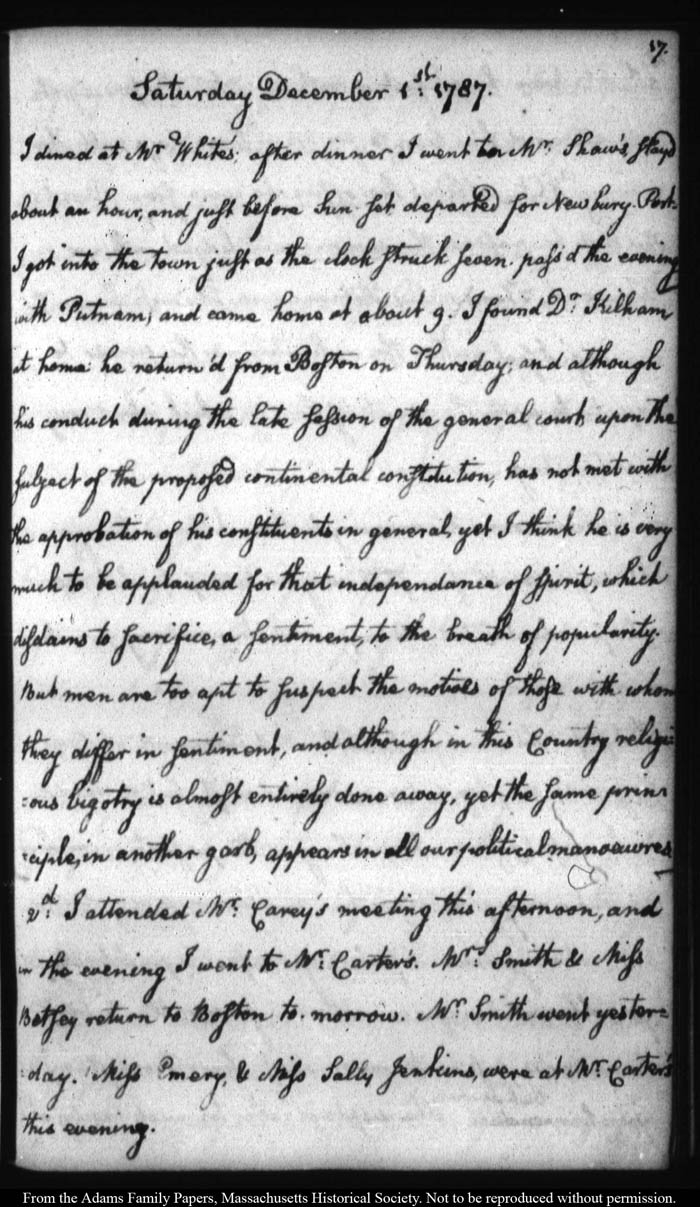 17.
Saturday December 1st: 1787.
I dined at Mr. White's; after dinner I went to Mr. Shaw's, stayd
about an hour, and just before Sun-set departed for Newbury-Port.
I got into the town just as the clock struck seven. pass'd the evening
with Putnam, and came home at about 9. I found Dr. Kilham
at home: he return'd from Boston on Thursday; and although
his conduct during the late session of the general court, upon the
subject of the proposed continental constitution, has not met with
the approbation of his constituents in general, yet I think he is very
much to be applauded for that independance of spirit, which
disdains to sacrifice, a sentiment, to the breath of popularity.
But men are too apt to suspect the motives of those with whom
they differ in sentiment, and although in this Country religi=
=ous bigotry is almost entirely done away, yet the same prin=
=ciple, in another garb, appears in all our political manoeuvres.
2d: I attended Mr. Carey's meeting this afternoon, and
in the evening I went to Mr. Carter's. Mrs. Smith & Miss
Betsey return to Boston to-morrow. Mr. Smith went yester=
=day. Miss Emery, & Miss Sally Jenkins, were at Mr. Carter's
this evening.
From the Adams Family Papers, Massachusetts Historical Society. Not to be reproduced without permission.